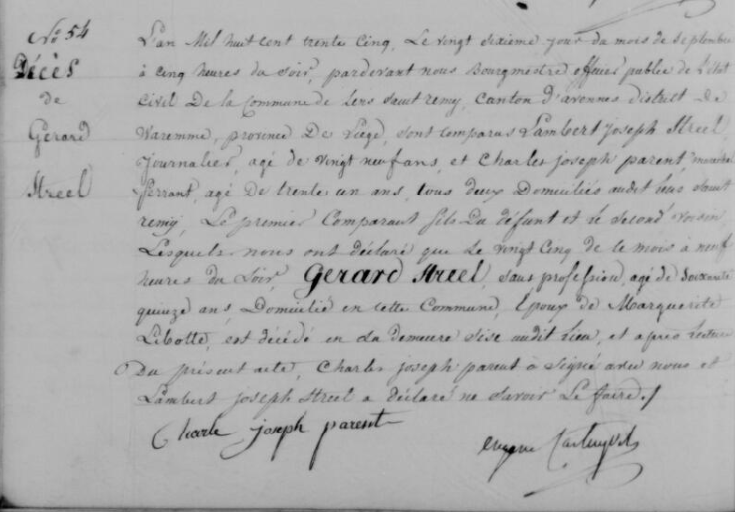 No 54
Décès
de
Gerard
Streel
L'an Mil huit cent trente Cinq, Le vingt sixième jour du mois de Septembre
à cinq heures du Soir, pardevant nous Bourgmestre officier public de L'état
Civil De la Commune de Lens saint remy, Canton d'avennes District De
Waremme, province De Liège, sont comparus Lambert joseph Streel
Journalier, agé de vingt neuf ans, et Charles joseph parent, marechal
ferrant, agé De trente un ans, tous deux Domiciliés audit Lens saint
remy, Le premier Comparant fils Du défunt et le second voisin,
Lesquels nous ont déclaré que le vingt Cinq de ce mois à neuf
heures du Soir, Gerard Streel, sans profession, agé de Soixante
quinze ans, Domicilié en cette Commune, Epoux de Marguerite
Libotte, est décédé en sa demeure sise audit lieu, et après lecture
Du présent acte, Charles joseph parent a Signé avec nous et
Lambert joseph Streel a déclaré ne savoir Le faire./
Charle joseph parent